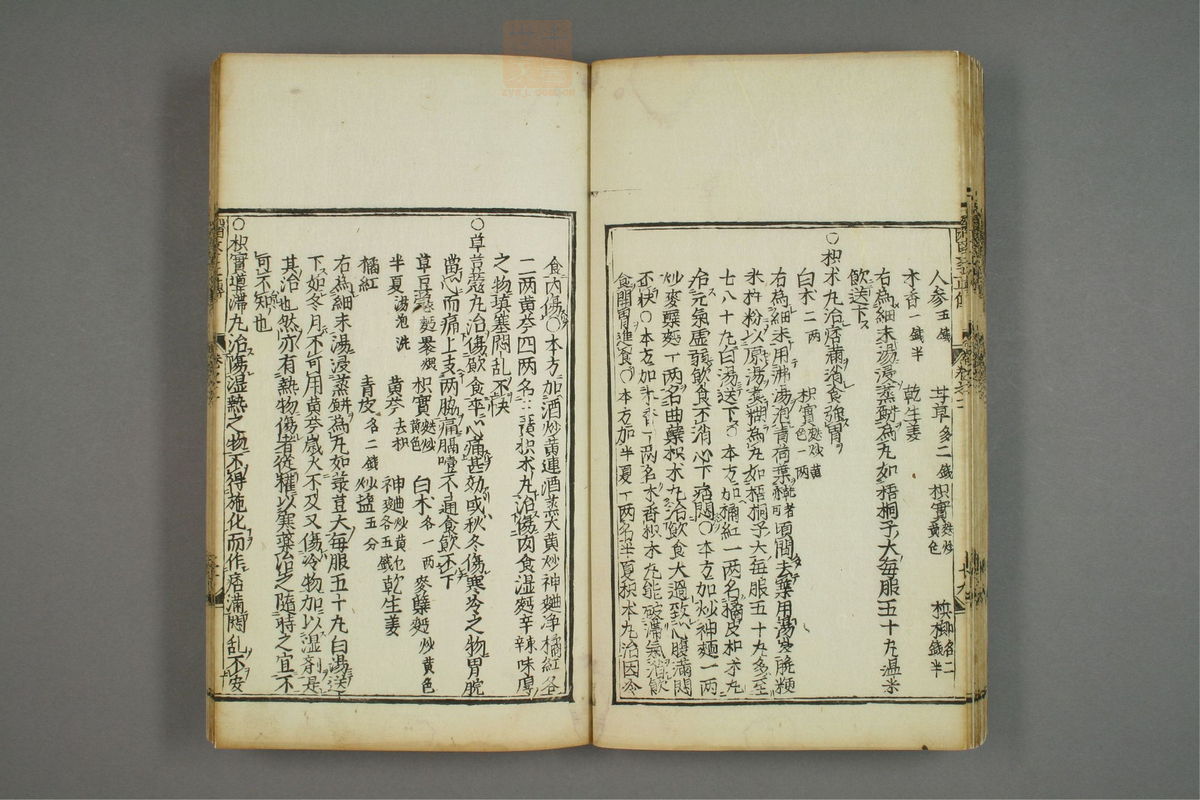 人參五錢　甘草多二錢　枳實麩炒黃色　檳榔各二錢半
木香一錢半　乾生姜
右為細末湯浸蒸餅為丸如梧桐子大每服五十丸溫米
飲送下
○枳朮丸治痞滿消食強胃
白朮二兩　枳實麩炒黃色一兩
右為細末用沸湯泡青荷葉乾者亦可頃間去葉用湯寒晚粳
米杵粉以原湯煑糊為丸如梧桐子大每服五十丸多至
七八十丸白湯送下○本方加橘紅一兩名橘皮枳朮丸
治元氣虛弱飲食不消心下痞悶○本方加炒神麯一兩
炒麥糵麪一兩名曲糵枳朮丸治飲食大過致心腹滿悶
不快○本方加木香一兩名木香枳朮丸能破滯氣消飲
食開胃進食○本方加半夏一兩名半夏枳朮丸治因冷
食內傷○本方加酒炒黃連酒蒸大黃炒神麯淨橘紅各
二兩黃芩四兩名三黃枳朮丸治傷肉食湿麪辛辣味厚
之物填塞悶乱不快
○草荳蔻丸治傷飲食卒心痛甚効或秋冬傷寒冷之物胃脘
當心而痛上支兩脇痛膈噎不通食飲不下
草豆蔻麪裹煨　枳實麩炒黃色　白朮各一兩　麥糵麪炒黃色
半夏湯泡洗　黃芩去朽　神麯炒黃色各五錢　乾生姜
橘紅　青皮各二錢　炒盐五分
右為細末湯浸蒸餅為丸如菉荳大每服五十丸白湯送
下如冬月不可用黃芩歲大不及又傷冷物加以湿剤是
其治也然亦有熱物傷者從權以寒藥治之隨時之宜不
可不知也
○枳實導滯丸治傷湿熱之物不得施化而作痞滿悶乱不安